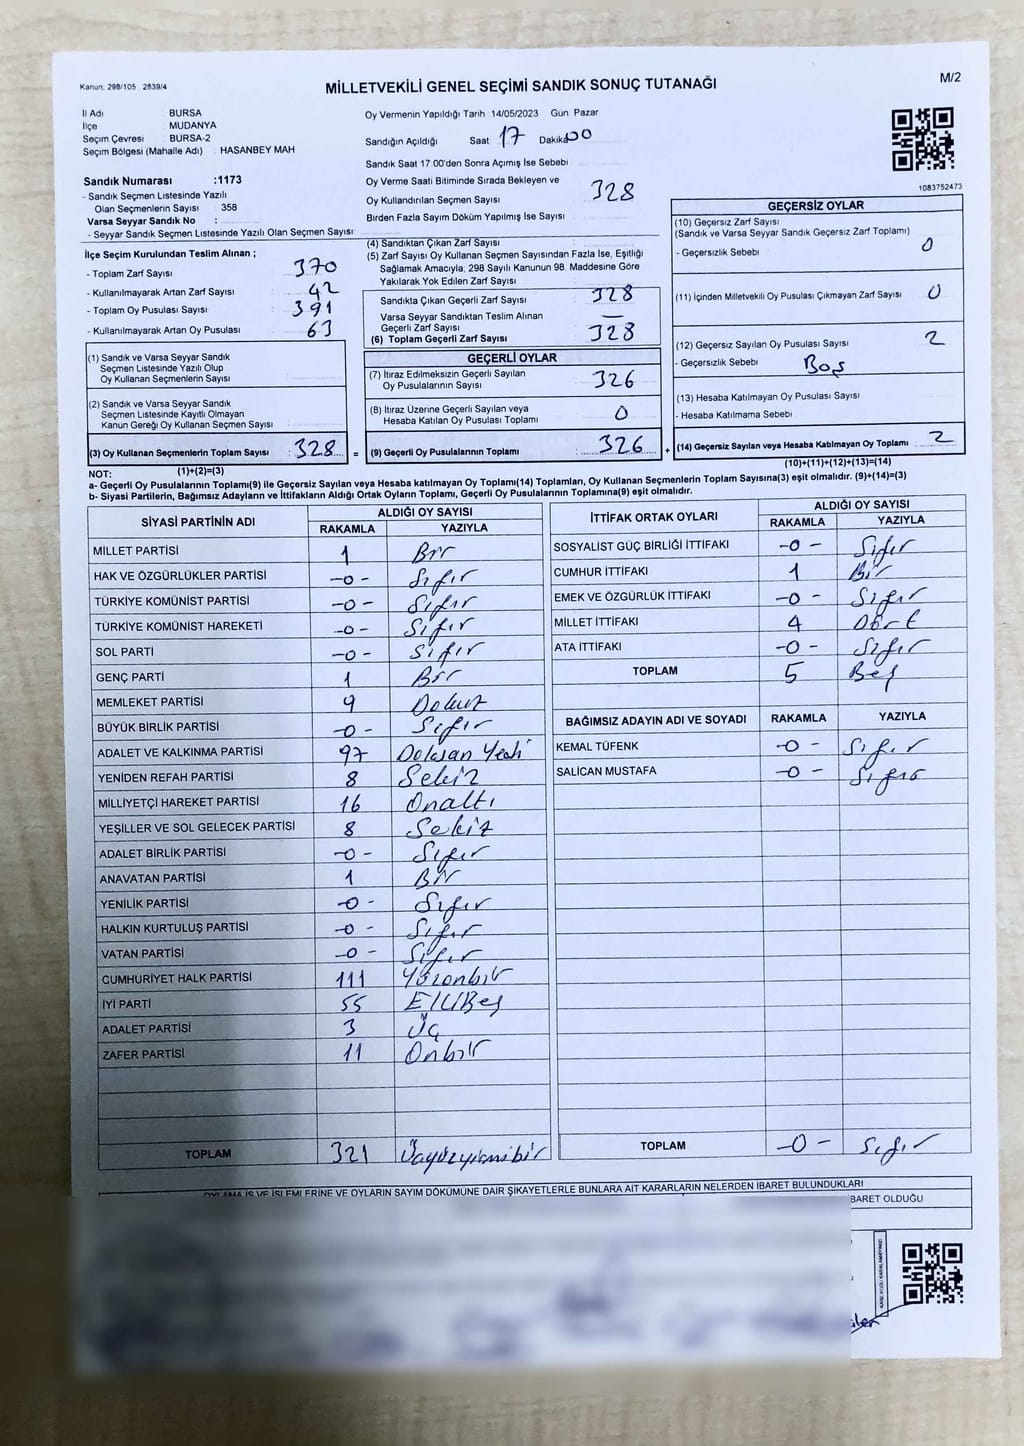 Kanun, 298/105 2839/4
MİLLETVEKİLİ GENEL SEÇİMİ SANDIK SONUÇ TUTANAĞI
M/2
İl Adı BURSA
İlçe MUDANYA
Seçim Çevresi BURSA-2
Seçim Bölgesi (Mahalle Adı) HASANBEY MAH
Oy Vermenin Yapıldığı Tarih 14/05/2023 Gün Pazar
Sandığın Açıldığı Saat 17 Dakika 00
Sandık Saat 17 00'den Sonra Açımış İse Sebebi
Oy Verme Saati Bitiminde Sırada Bekleyen ve
Oy Kullandırılan Seçmen Sayısı 328
Birden Fazla Sayım Döküm Yapılmış İse Sayısı
1083752473
Sandık Numarası :1173
- Sandık Seçmen Listesinde Yazılı
Olan Seçmenlerin Sayısı 358
Varsa Seyyar Sandık No :
- Seyyar Sandık Seçmen Listesinde Yazılı Olan Seçmen Sayısı
İlçe Seçim Kurulundan Teslim Alınan ;
- Toplam Zarf Sayısı 370
- Kullanılmayarak Artan Zarf Sayısı 42
- Toplam Oy Pusulası Sayısı 391
- Kullanılmayarak Artan Oy Pusulası 63
(1) Sandık ve Varsa Seyyar Sandık
Seçmen Listesinde Yazılı Olup
Oy Kullanan Seçmenlerin Sayısı
(2) Sandık ve Varsa Seyyar Sandık
Seçmen Listesinde Kayıtlı Olmayan
Kanun Gereği Oy Kullanan Seçmen Sayısı
(3) Oy Kullanan Seçmenlerin Toplam Sayısı : 328 =
(4) Sandıktan Çıkan Zarf Sayısı
(5) Zarf Sayısı Oy Kullanan Seçmen Sayısından Fazla İse, Eşitliği
Sağlamak Amacıyla; 298 Sayılı Kanunun 98. Maddesine Göre
Yakılarak Yok Edilen Zarf Sayısı
Sandıkta Çıkan Geçerli Zarf Sayısı 328
Varsa Seyyar Sandıktan Teslim Alınan
Geçerli Zarf Sayısı —
(6) Toplam Geçerli Zarf Sayısı 328
GEÇERLİ OYLAR
(7) İtiraz Edilmeksizin Geçerli Sayılan
Oy Pusulalarının Sayısı 326
(8) İtiraz Üzerine Geçerli Sayılan veya
Hesaba Katılan Oy Pusulası Toplamı 0
(9) Geçerli Oy Pusulalarının Toplamı : 326 +
GEÇERSİZ OYLAR
(10) Geçersiz Zarf Sayısı
(Sandık ve Varsa Seyyar Sandık Geçersiz Zarf Toplamı)
- Geçersizlik Sebebi 0
(11) İçinden Milletvekili Oy Pusulası Çıkmayan Zarf Sayısı 0
(12) Geçersiz Sayılan Oy Pusulası Sayısı 2
- Geçersizlik Sebebi Boş
(13) Hesaba Katılmayan Oy Pusulası Sayısı
- Hesaba Katılmama Sebebi
(14) Geçersiz Sayılan veya Hesaba Katılmayan Oy Toplamı : 2
NOT: (1)+(2)=(3)
(10)+(11)+(12)+(13)=(14)
a- Geçerli Oy Pusulalarının Toplamı(9) ile Geçersiz Sayılan veya Hesaba katılmayan Oy Toplamı(14) Toplamları, Oy Kullanan Seçmenlerin Toplam Sayısına(3) eşit olmalıdır. (9)+(14)=(3)
b- Siyasi Partilerin, Bağımsız Adayların ve İttifakların Aldığı Ortak Oyların Toplamı, Geçerli Oy Pusulalarının Toplamına(9) eşit olmalıdır.
SİYASİ PARTİNİN ADI ALDIĞI OY SAYISI
RAKAMLA YAZIYLA
MİLLET PARTİSİ 1 Bir
HAK VE ÖZGÜRLÜKLER PARTİSİ -0- Sıfır
TÜRKİYE KOMÜNİST PARTİSİ -0- Sıfır
TÜRKİYE KOMÜNİST HAREKETİ -0- Sıfır
SOL PARTİ -0- Sıfır
GENÇ PARTİ 1 Bir
MEMLEKET PARTİSİ 9 Dokuz
BÜYÜK BİRLİK PARTİSİ -0- Sıfır
ADALET VE KALKINMA PARTİSİ 97 Doksan Yedi
YENİDEN REFAH PARTİSİ 8 Sekiz
MİLLİYETÇİ HAREKET PARTİSİ 16 Onaltı
YEŞİLLER VE SOL GELECEK PARTİSİ 8 Sekiz
ADALET BİRLİK PARTİSİ -0- Sıfır
ANAVATAN PARTİSİ 1 Bir
YENİLİK PARTİSİ -0- Sıfır
HALKIN KURTULUŞ PARTİSİ -0- Sıfır
VATAN PARTİSİ -0- Sıfır
CUMHURİYET HALK PARTİSİ 111 Yüzonbir
İYİ PARTİ 55 ElliBeş
ADALET PARTİSİ 3 Üç
ZAFER PARTİSİ 11 Onbir
TOPLAM 321 Üçyüzyirmibir
İTTİFAK ORTAK OYLARI ALDIĞI OY SAYISI
RAKAMLA YAZIYLA
SOSYALİST GÜÇ BİRLİĞİ İTTİFAKI -0- Sıfır
CUMHUR İTTİFAKI 1 Bir
EMEK VE ÖZGÜRLÜK İTTİFAKI -0- Sıfır
MİLLET İTTİFAKI 4 Dört
ATA İTTİFAKI -0- Sıfır
TOPLAM 5 Beş
BAĞIMSIZ ADAYIN ADI VE SOYADI RAKAMLA YAZIYLA
KEMAL TÜFENK -0- Sıfır
SALİCAN MUSTAFA -0- Sıfır
TOPLAM -0- Sıfır
OYLAMA İŞ VE İŞLEMLERİNE VE OYLARIN SAYIM DÖKÜMÜNE DAİR ŞİKAYETLERLE BUNLARA AİT KARARLARIN NELERDEN İBARET BULUNDUKLARI
BARET OLDUĞU